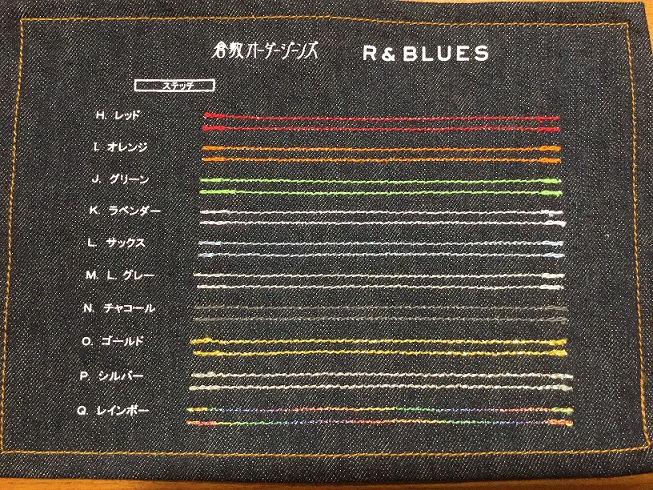 倉敷オーダージーンズ R & BLUES
ステッチ
H. レッド
I. オレンジ
J. グリーン
K. ラベンダー
L. サックス
M. L. グレー
N. チャコール
O. ゴールド
P. シルバー
Q. レインボー